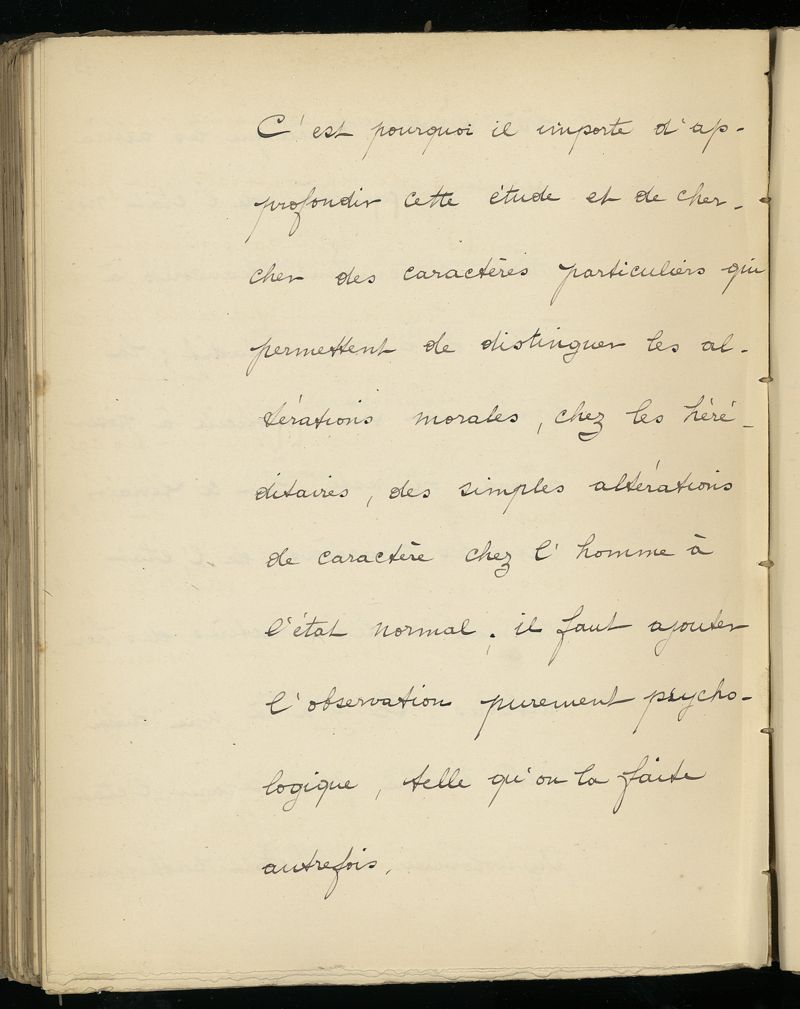 C'est pourquoi il importe d'ap-
profondir cette étude et de cher-
cher des caractères particuliers qui
permettent de distinguer les al-
térations morales, chez les héré-
ditaires, des simples altérations
de caractère chez l'homme à
l'état normal ; il faut ajouter
l'observation purement psycho-
logique, telle qu'on la faite
autrefois,